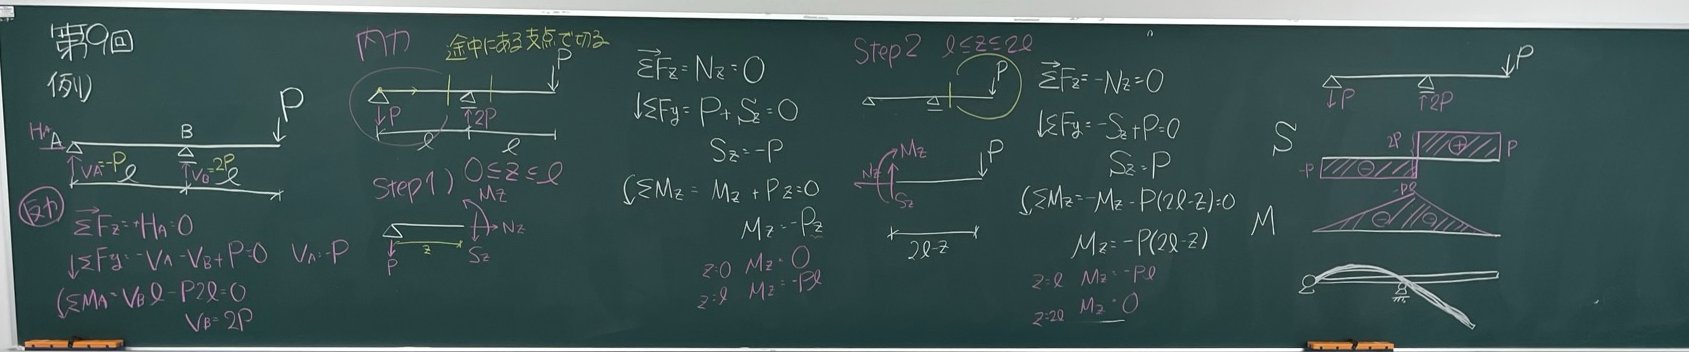 第9回
例)
P
HA A B
VA=-P l VB=2P l
反力
ΣFz=+HA=0
↓ΣFy=-VA-VB+P=0 VA=-P
ΣMA=VBl-P2l=0
VB=2P
内力 途中にある支点で切る
P
↓P ↑2P
l l
Step1) 0≤z≤l
Mz
Nz
z
P Sz
ΣFz=Nz=0
↓ΣFy=P+Sz=0
Sz=-P
ΣMz=Mz+Pz=0
Mz=-Pz
z=0 Mz=0
z=l Mz=-Pl
Step2 l≤z≤2l
P
Mz P
Nz
Sz
2l-z
ΣFz=-Nz=0
↓ΣFy=-Sz+P=0
Sz=P
ΣMz=-Mz-P(2l-z)=0
Mz=-P(2l-z)
z=l Mz=-Pl
z=2l Mz=0
P
↓P ↑2P
S 2P ⊕ P
-P ⊖
-Pl
M ⊖ ⊖